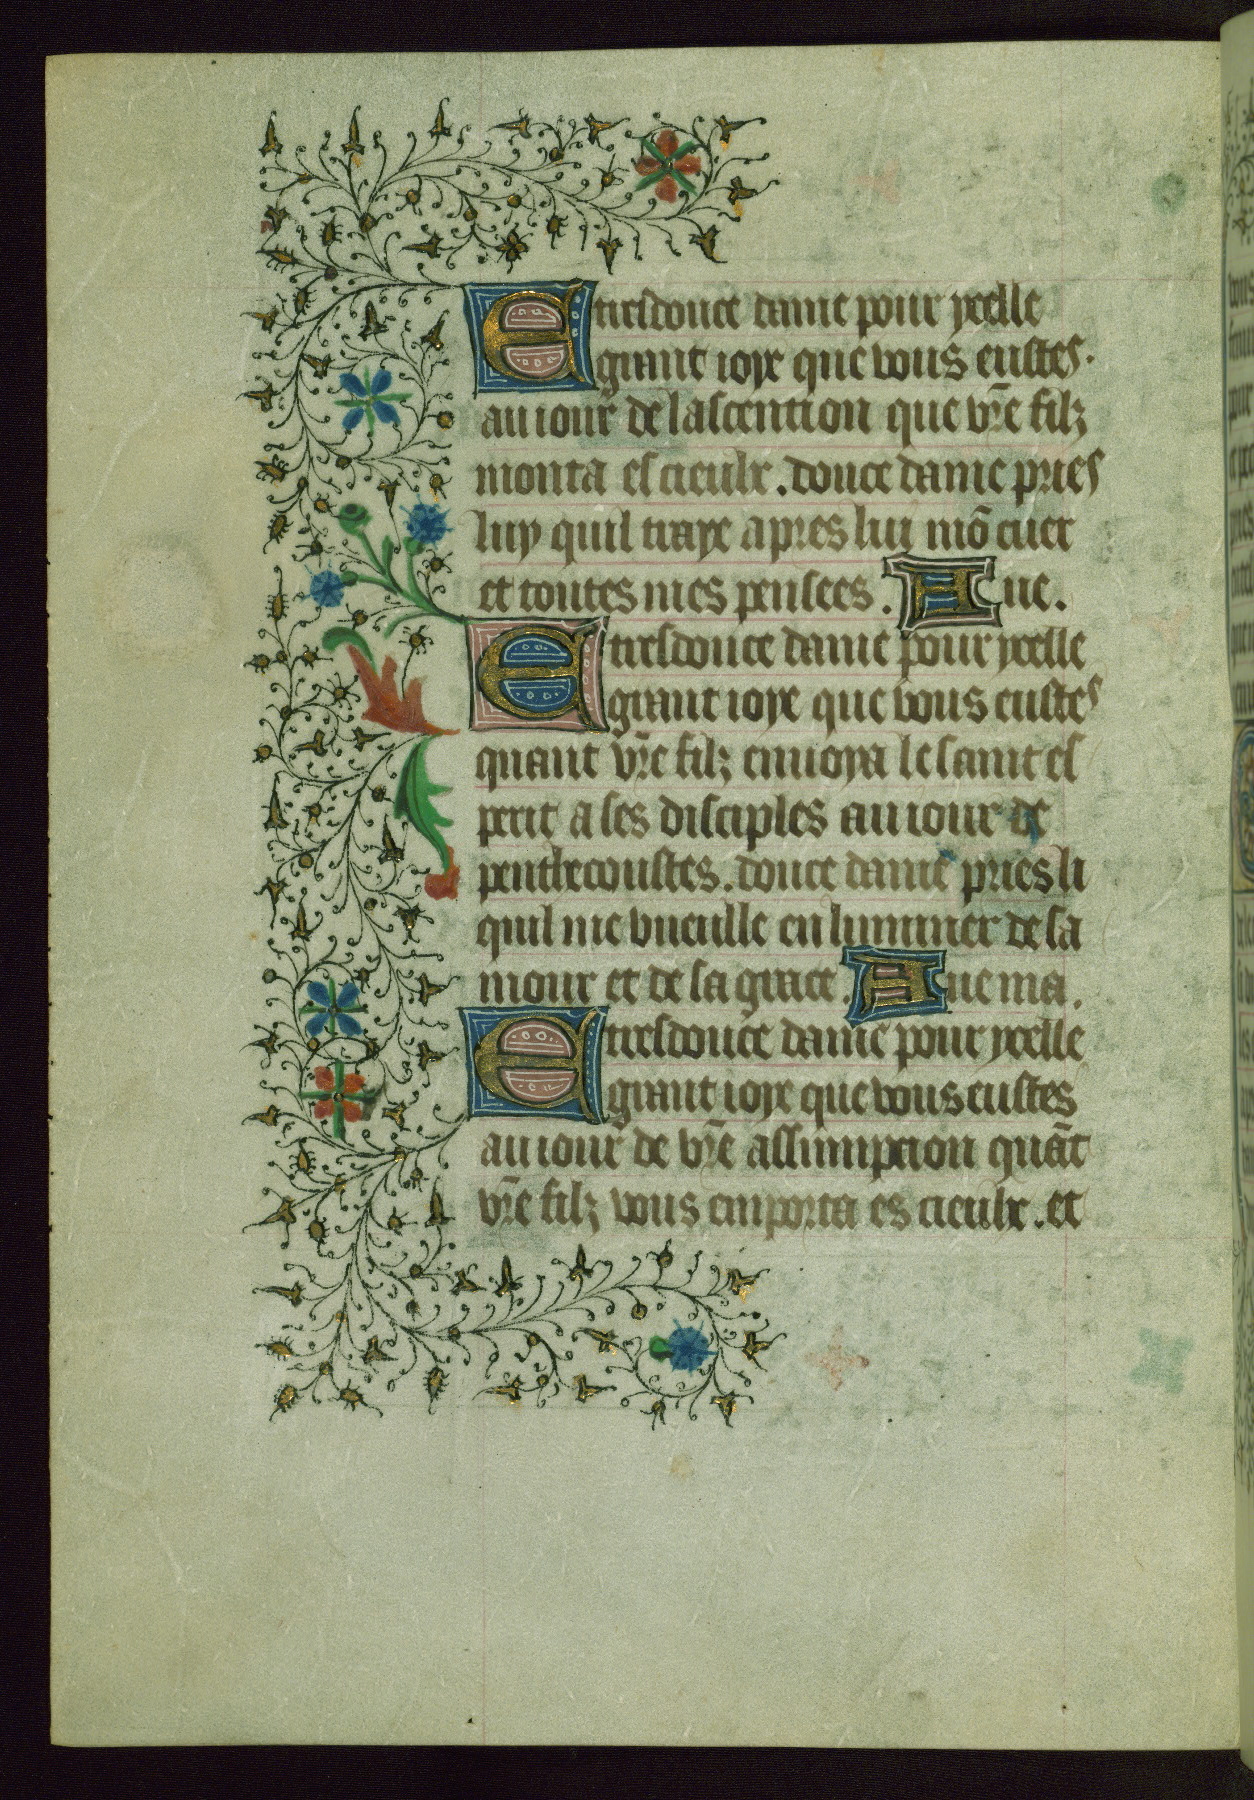 Etresdouce dame pour ycelle
grant ioye que vous eustes.
au iour de lascention que vr̄e filz
monta es cieulx. douce dame pries
luy quil traye apres lui mō cuer
et toutes mes pensees. Aue.
Etresdouce dame pour ycelle
grant ioye que vous eustes
quant vr̄e filz enuoya le saint es
perit a ses disciples au iour de
penthecoustes. douce dame pries li
quil me vueille enluminer de sa
mour et de sa grace. Aue ma.
Etresdouce dame pour ycelle
grant ioye que vous eustes
au iour de vr̄e assumpcion quāt
vr̄e filz vous emporta es cieulx. et